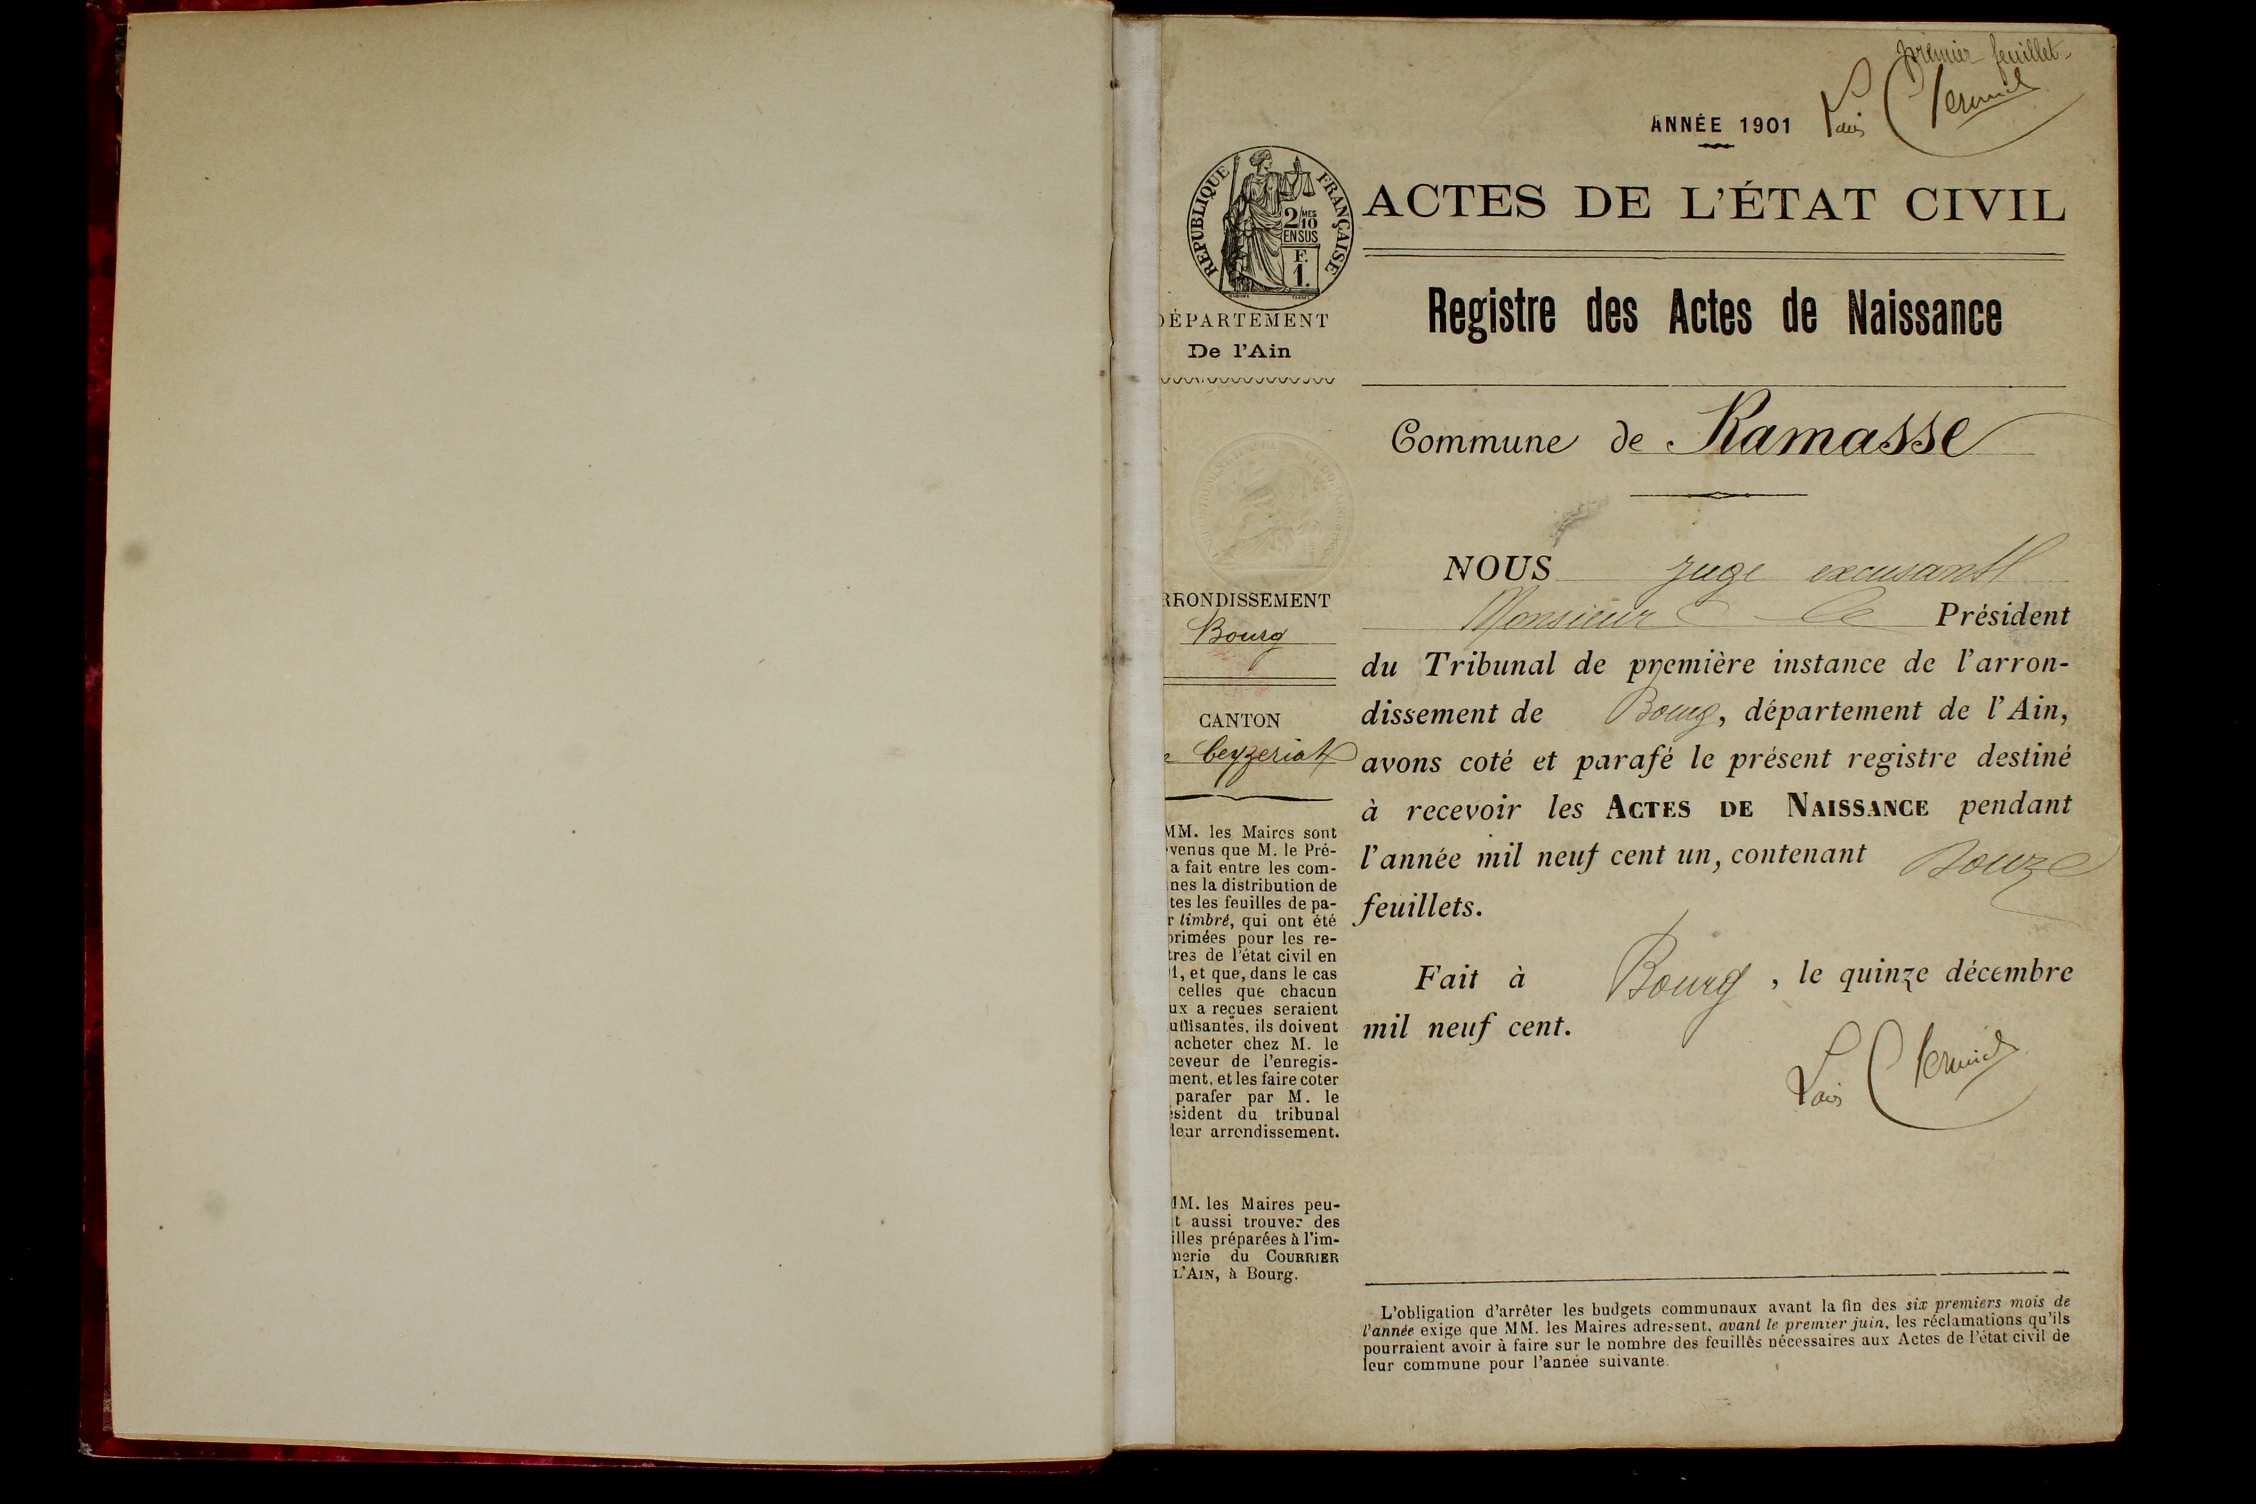 premier feuillet
ANNÉE 1901
RÉPUBLIQUE FRANÇAISE
2/10 MES
EN SUS
F.
1.
ACTES DE L'ÉTAT CIVIL
Registre des Actes de Naissance
DÉPARTEMENT
De l'Ain
Commune de Ramasse
RRONDISSEMENT
Bourg
CANTON
Ceyzeriat
MM. les Maires sont
venus que M. le Pré-
a fait entre les com-
nes la distribution de
tes les feuilles de pa-
r timbré, qui ont été
primées pour les re-
tres de l'état civil en
1, et que, dans le cas
celles que chacun
ux a reçues seraient
uffisantes, ils doivent
acheter chez M. le
ceveur de l'enregis-
ment, et les faire coter
parafer par M. le
ésident du tribunal
leur arrondissement.
MM. les Maires peu-
t aussi trouver des
illes préparées à l'im-
merie du COURRIER
L'AIN, à Bourg.
NOUS juge excusant
Monsieur le Président
du Tribunal de première instance de l'arron-
dissement de Bourg, département de l'Ain,
avons coté et parafé le présent registre destiné
à recevoir les ACTES DE NAISSANCE pendant
l'année mil neuf cent un, contenant Douze
feuillets.
Fait à Bourg, le quinze décembre
mil neuf cent.
L'obligation d'arrêter les budgets communaux avant la fin des six premiers mois de
l'année exige que MM. les Maires adressent, avant le premier juin, les réclamations qu'ils
pourraient avoir à faire sur le nombre des feuilles nécessaires aux Actes de l'état civil de
leur commune pour l'année suivante.